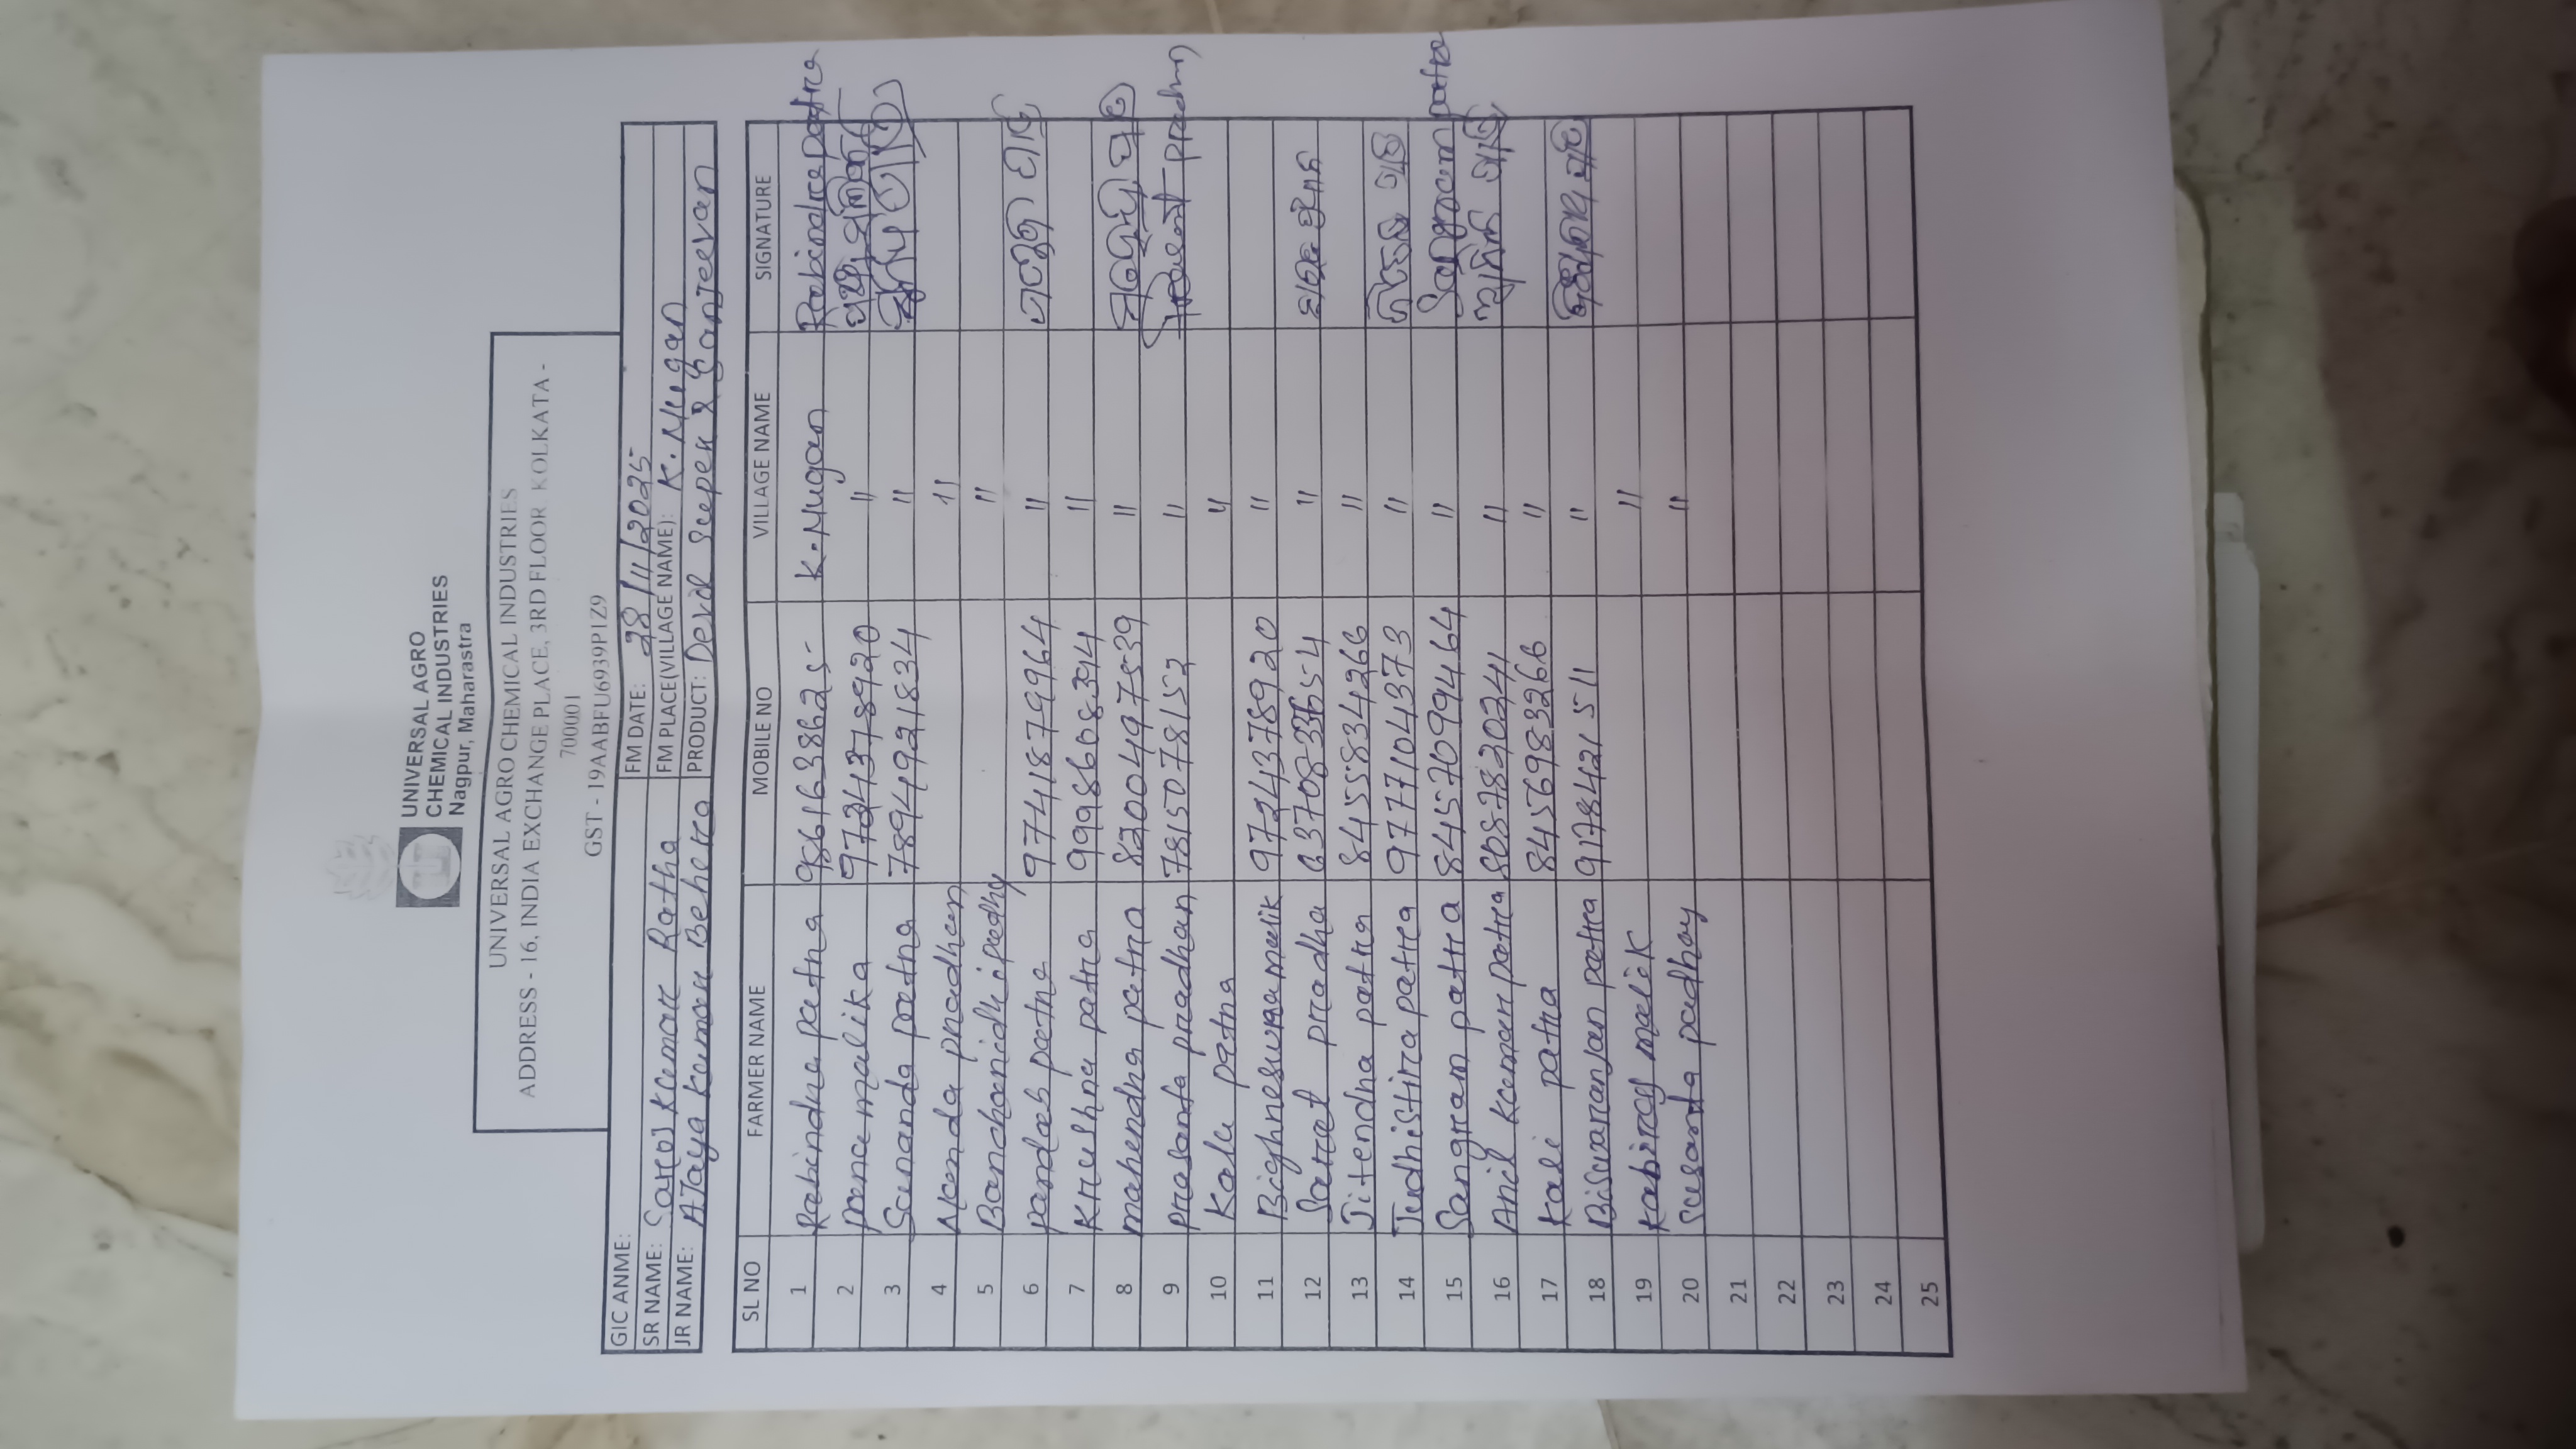 UNIVERSAL AGRO
CHEMICAL INDUSTRIES
Nagpur, Maharastra
UNIVERSAL AGRO CHEMICAL INDUSTRIES
ADDRESS - 16, INDIA EXCHANGE PLACE, 3RD FLOOR KOLKATA -
700001
GST - 19AABFU6939P1Z9
GIC ANME: FM DATE: 28/11/2025
SR NAME: Saroj Kumar Ratha FM PLACE(VILLAGE NAME): K.Mugan
JR NAME: AJaya Kumar Behera PRODUCT: Sanjeevan
SL NO FARMER NAME MOBILE NO VILLAGE NAME SIGNATURE
1 Rabindra patra 9861638625 K.Mugan Rabindra patra
2 panamalika "
3 Sunanda patra 7894921834 "
4 Nanda pradhan "
5 Banchanidhi padhy "
6 pandab patra 9741879964 "
7 Krushna patra 9998608394 "
8 mahendra patra 8200497539 "
9 prasanta pradhan 7815078152 "
10 Kalu patra "
11 Bighneswara malik 9724378920 "
12 Sarat pradha "
13 Jitendra patra 8455834266 "
14 Judhistira patra 9777104373 "
15 Sangram patra 8457099464 " Sangram patra
16 Anil Kumar patra "
17 Kali patra 8456983266 "
18 Biswaranjan patra 9178421511 "
19 Kabiraj malik "
20 Susanta padhay "
21
22
23
24
25